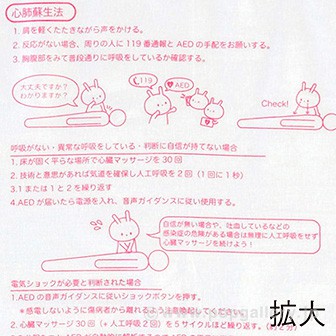 心肺蘇生法
1. 肩を軽くたたきながら声をかける。
2. 反応がない場合、周りの人に119番通報とAEDの手配をお願いする。
3. 胸腹部をみて普段通りに呼吸をしているか確認する。
大丈夫ですか?
わかりますか?
119
AED
Check!
呼吸がない・異常な呼吸をしている・判断に自信が持てない場合
1. 床が固く平らな場所で心臓マッサージを30回
2. 技術と意思があれば気道を確保し人工呼吸を2回(1回に1秒)
3.1または1と2を繰り返す
4.AEDが届いたら電源を入れ、音声ガイダンスに従い使用する。
自信が無い場合や、吐血しているなどの
感染症の危険がある場合は無理に人工呼吸をせず
心臓マッサージを続けよう!
電気ショックが必要と判断された場合
1.AEDの音声ガイダンスに従いショックボタンを押す。
*感電しないように傷病者から離れるよう注意喚起してください
2. 心臓マッサージ30回(+人工呼吸2回)を5サイクルほど繰り返す。(約2分)
拡大